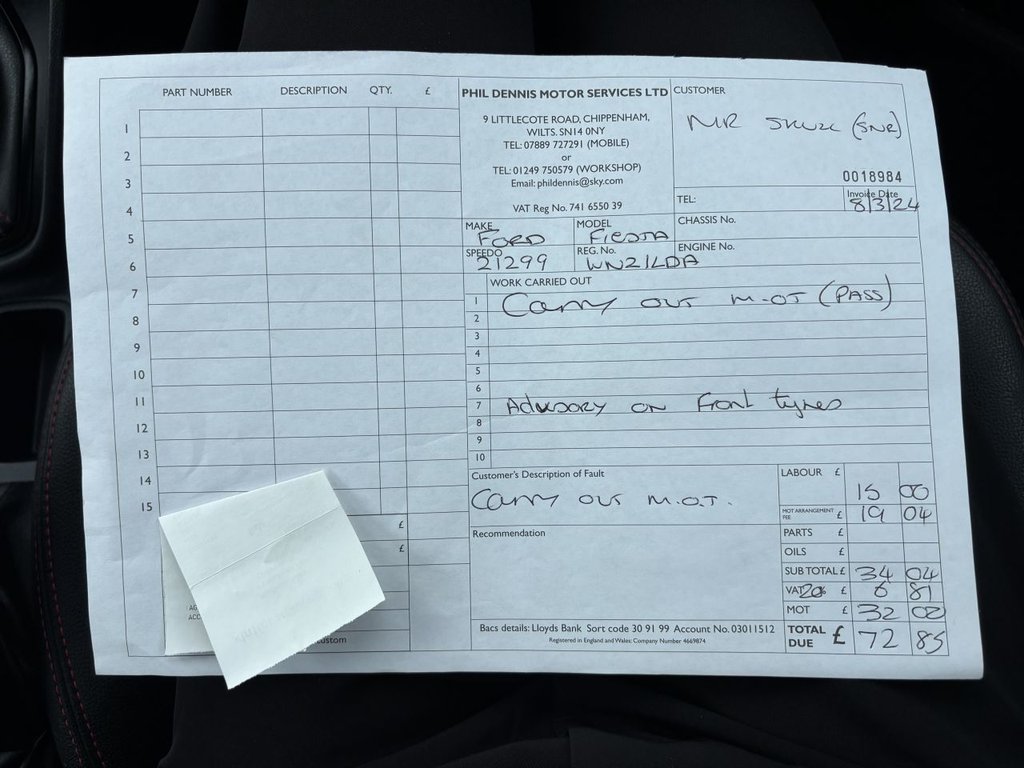 PART NUMBER DESCRIPTION QTY. £
1
2
3
4
5
6
7
8
9
10
11
12
13
14
15
£
£
AG
ACC
custom
PHIL DENNIS MOTOR SERVICES LTD
9 LITTLECOTE ROAD, CHIPPENHAM,
WILTS. SN14 0NY
TEL: 07889 727291 (MOBILE)
or
TEL: 01249 750579 (WORKSHOP)
Email: phildennis@sky.com
VAT Reg No. 741 6550 39
CUSTOMER
MR (SNR)
0018984
TEL:
Invoice Date
8/3/24
MAKE FORD
MODEL FIESTA
CHASSIS No.
SPEEDO 21299
REG. No. WN21LDA
ENGINE No.
WORK CARRIED OUT
1 Carry out M.OT (PASS)
2
3
4
5
6
7 Advisory on front tyres
8
9
10
Customer's Description of Fault
Carry out M.O.T.
Recommendation
LABOUR £ 15 00
MOT ARRANGEMENT FEE £ 19 04
PARTS £
OILS £
SUB TOTAL £ 34 04
VAT 20% £ 6 81
MOT £ 32 00
TOTAL DUE £ 72 85
Bacs details: Lloyds Bank Sort code 30 91 99 Account No. 03011512
Registered in England and Wales: Company Number 4669874